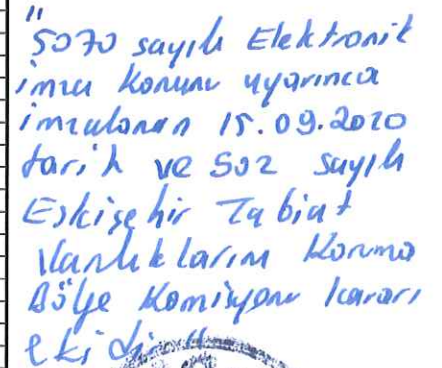 "
5070 sayılı Elektronik
imza Konunu uyarınca
imzalanan 15.09.2020
tarih ve 502 sayılı
Eskişehir Tabiat
Varlıklarını Koruma
Bölge Komisyonu kararı
ekidir"